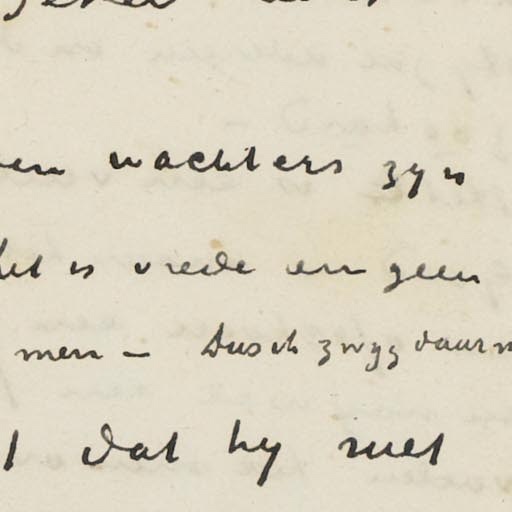 en wachters zyn
het is vrede en geen
men - Dus ik zwyg daar
dat hy niet